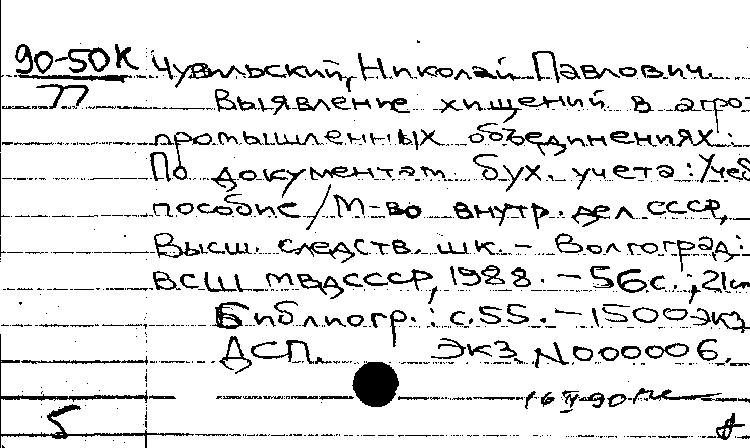 90-50К Чувильский, Николай Павлович.
77 Выявление хищений в агро-
промышленных объединениях:
По документам бух. учета: Учеб
пособие/М-во внутр. дел СССР,
Высш. следств. шк. - Волгоград:
ВСШ МВД СССР, 1988. - 56с.; 21см
Библиогр.: с.55. - 1500 экз
ДСП. Экз N000006.
16 IV 90
5